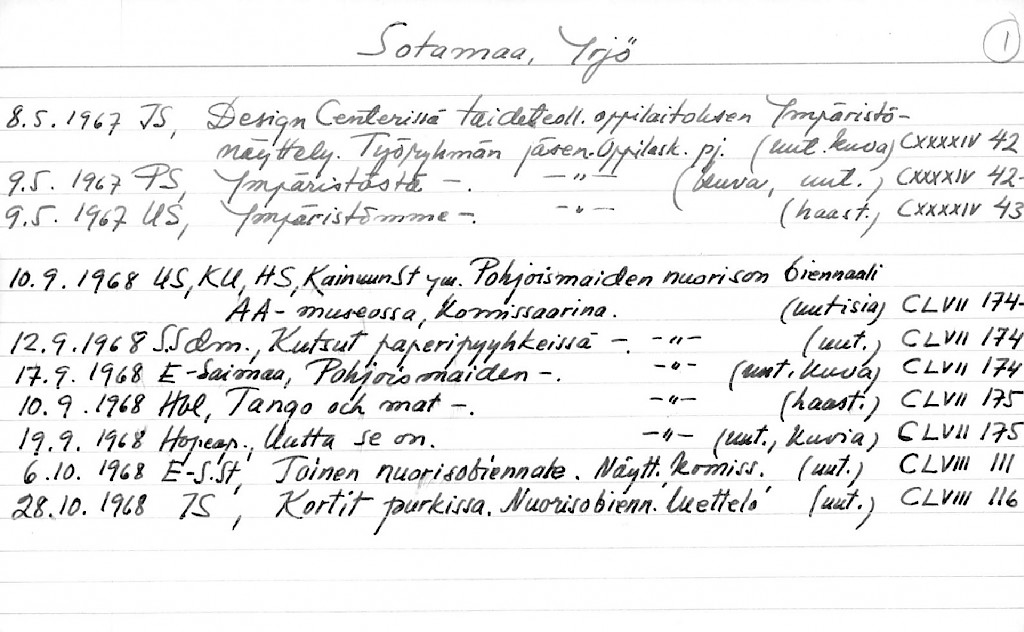 Sotamaa, Yrjö
1
8.5.1967 TS, Design Centerissä taideteoll. oppilaitoksen Ympäristö-
näyttely. Työryhmän jäsen. Oppilask. pj. (uut. kuva) CXXXXIV 42
9.5.1967 PS, Ympäristöstä -. -"- (kuva, uut.) CXXXXIV 42-
9.5.1967 US, Ympäristömme -. -"- (haast.) CXXXXIV 43
10.9.1968 US, KU, HS, KainuunSt ym. Pohjoismaiden nuorison biennaali
AA-museossa, komissaarina. (uutisia) CLVII 174-
12.9.1968 S.Sdm., Kutsut paperipyyhkeissä -. -"- (uut.) CLVII 174
17.9.1968 E-Saimaa, Pohjoismaiden -. -"- (uut. kuva) CLVII 174
10.9.1968 Hbl, Tango och mat -. -"- (haast.) CLVII 175
19.9.1968 Hopeap., Uutta se on. -"- (uut., kuvia) CLVII 175
6.10.1968 E-S.St, Toinen nuorisobiennale. Näytt. komiss. (uut.) CLVIII 111
28.10.1968 TS, Kortit purkissa. Nuorisobienn. luettelo (uut.) CLVIII 116